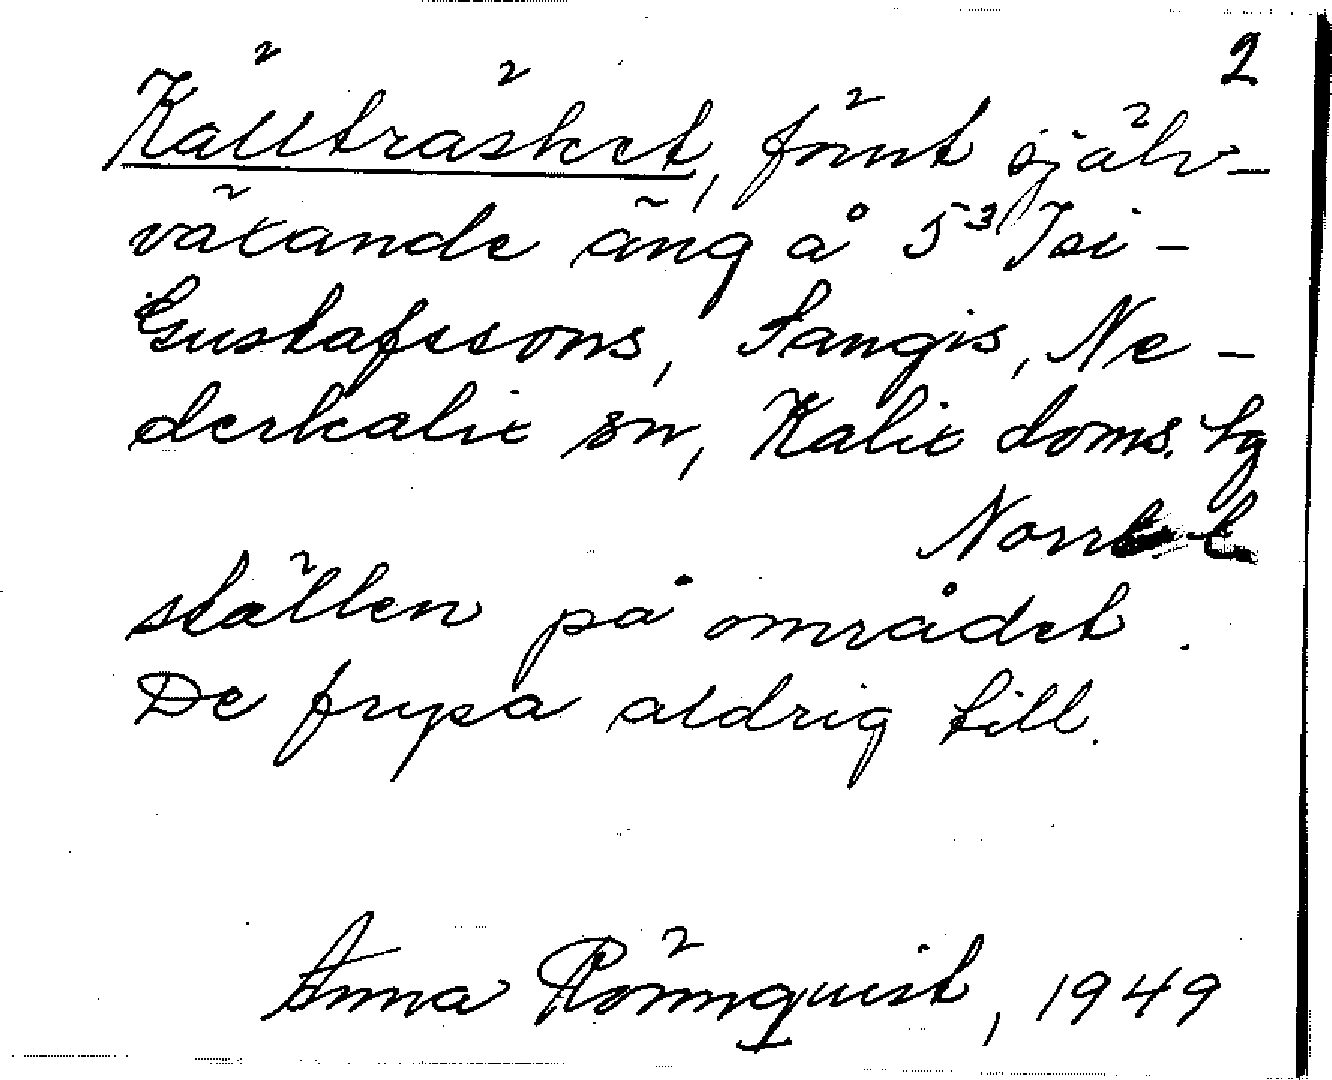 2
Källträsket, förut själv-
växande äng å 5³ Isi-
Gustafssons, Sangis, Ne-
derkalix sn, Kalix doms. lg
Norrb l
ställen på området.
De frysa aldrig till.
Anna Rönnquist, 1949